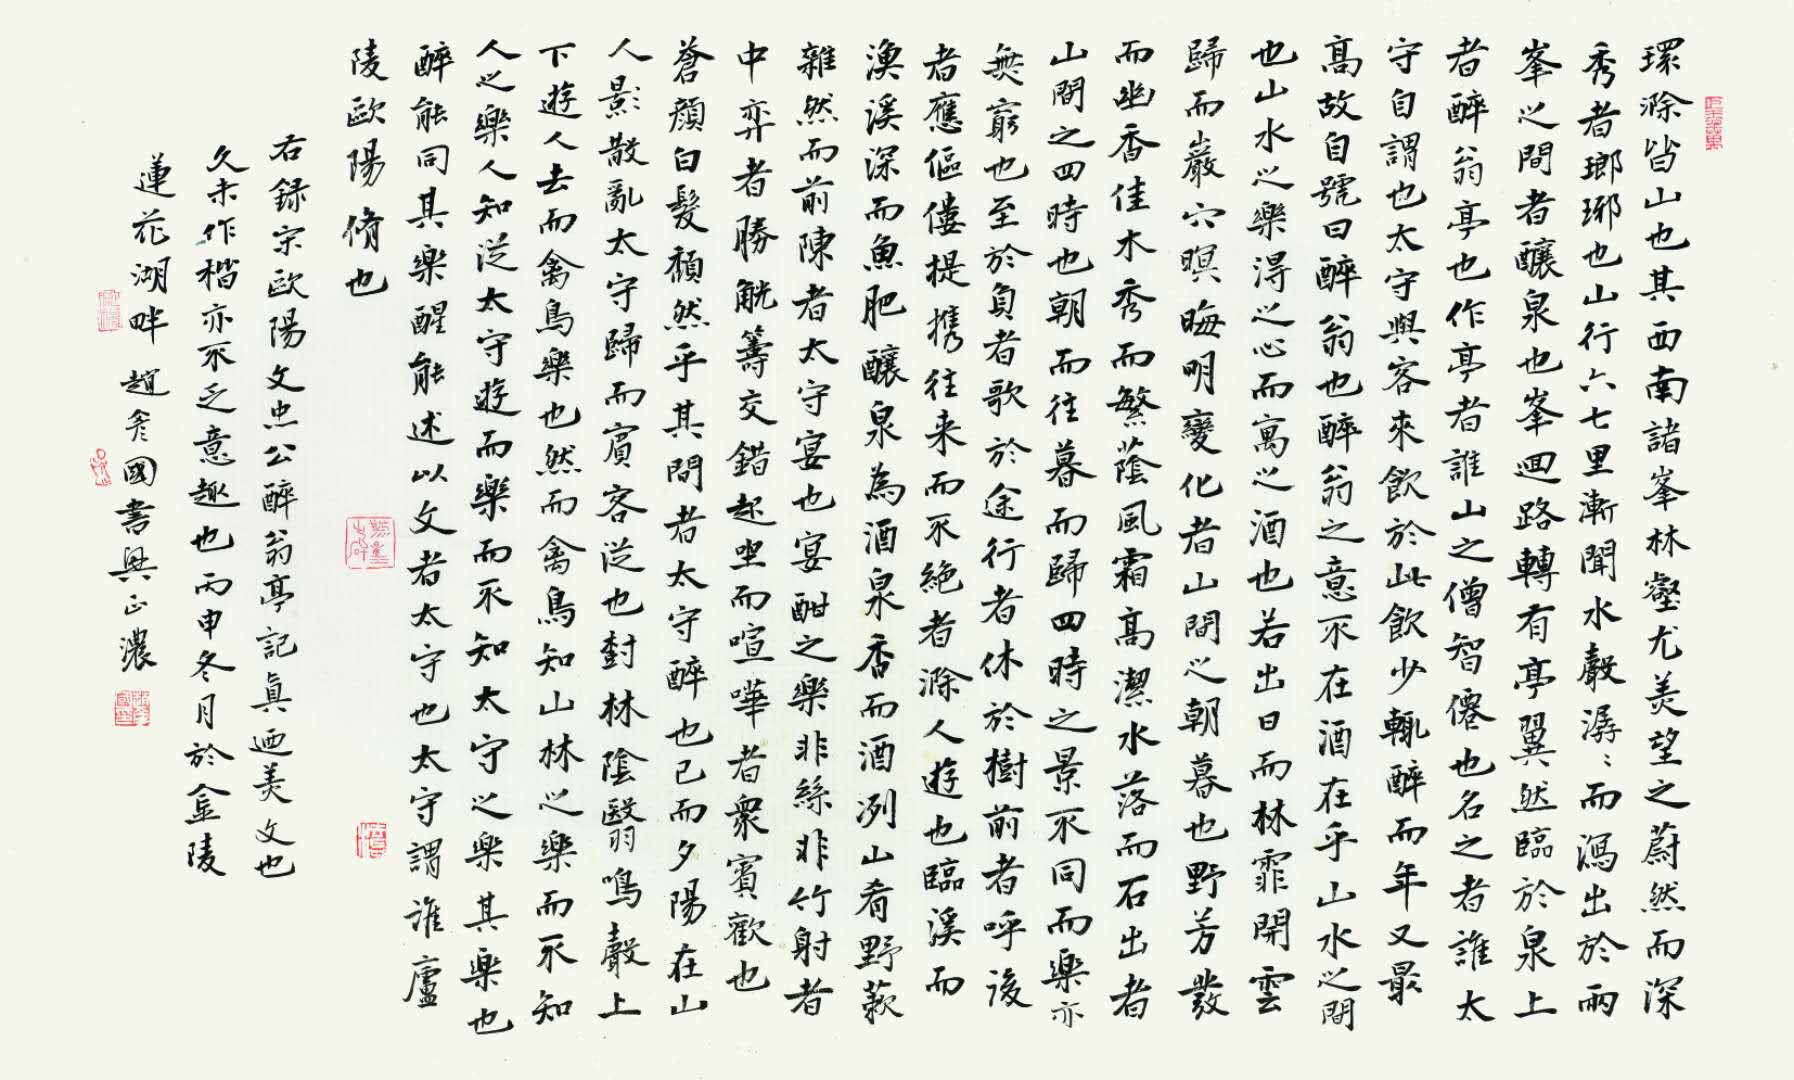 環滁皆山也其西南諸峯林壑尤美望之蔚然而深
秀者瑯琊也山行六七里漸聞水聲潺〻而瀉出於兩
峯之間者釀泉也峯迴路轉有亭翼然臨於泉上
者醉翁亭也作亭者誰山之僧智僊也名之者誰太
守自謂也太守與客來飲於此飲少輒醉而年又最
高故自號曰醉翁也醉翁之意不在酒在乎山水之間
也山水之樂得之心而寓之酒也若出日而林霏開雲
歸而巖穴暝晦明變化者山間之朝暮也野芳發
而幽香佳木秀而繁蔭風霜高潔水落而石出者
山間之四時也朝而往暮而歸四時之景不同而樂亦
無窮也至於負者歌於途行者休於樹前者呼後
者應傴僂提携往来而不絕者滁人遊也臨溪而
漁溪深而魚肥釀泉為酒泉香而酒洌山肴野蔌
雜然而前陳者太守宴也宴酣之樂非絲非竹射者
中弈者勝觥籌交錯起坐而喧嘩者衆賓歡也
蒼顏白髮頹然乎其間者太守醉也已而夕陽在山
人影散亂太守歸而賓客從也樹林陰翳鳴聲上
下遊人去而禽鳥樂也然而禽鳥知山林之樂而不知
人之樂人知從太守遊而樂而不知太守之樂其樂也
醉能同其樂醒能述以文者太守也太守謂誰廬
陵歐陽脩也
右録宋歐陽文忠公醉翁亭記真迺美文也
久未作楷亦不乏意趣也丙申冬月於金陵
蓮花湖畔 趙彥國書興正濃